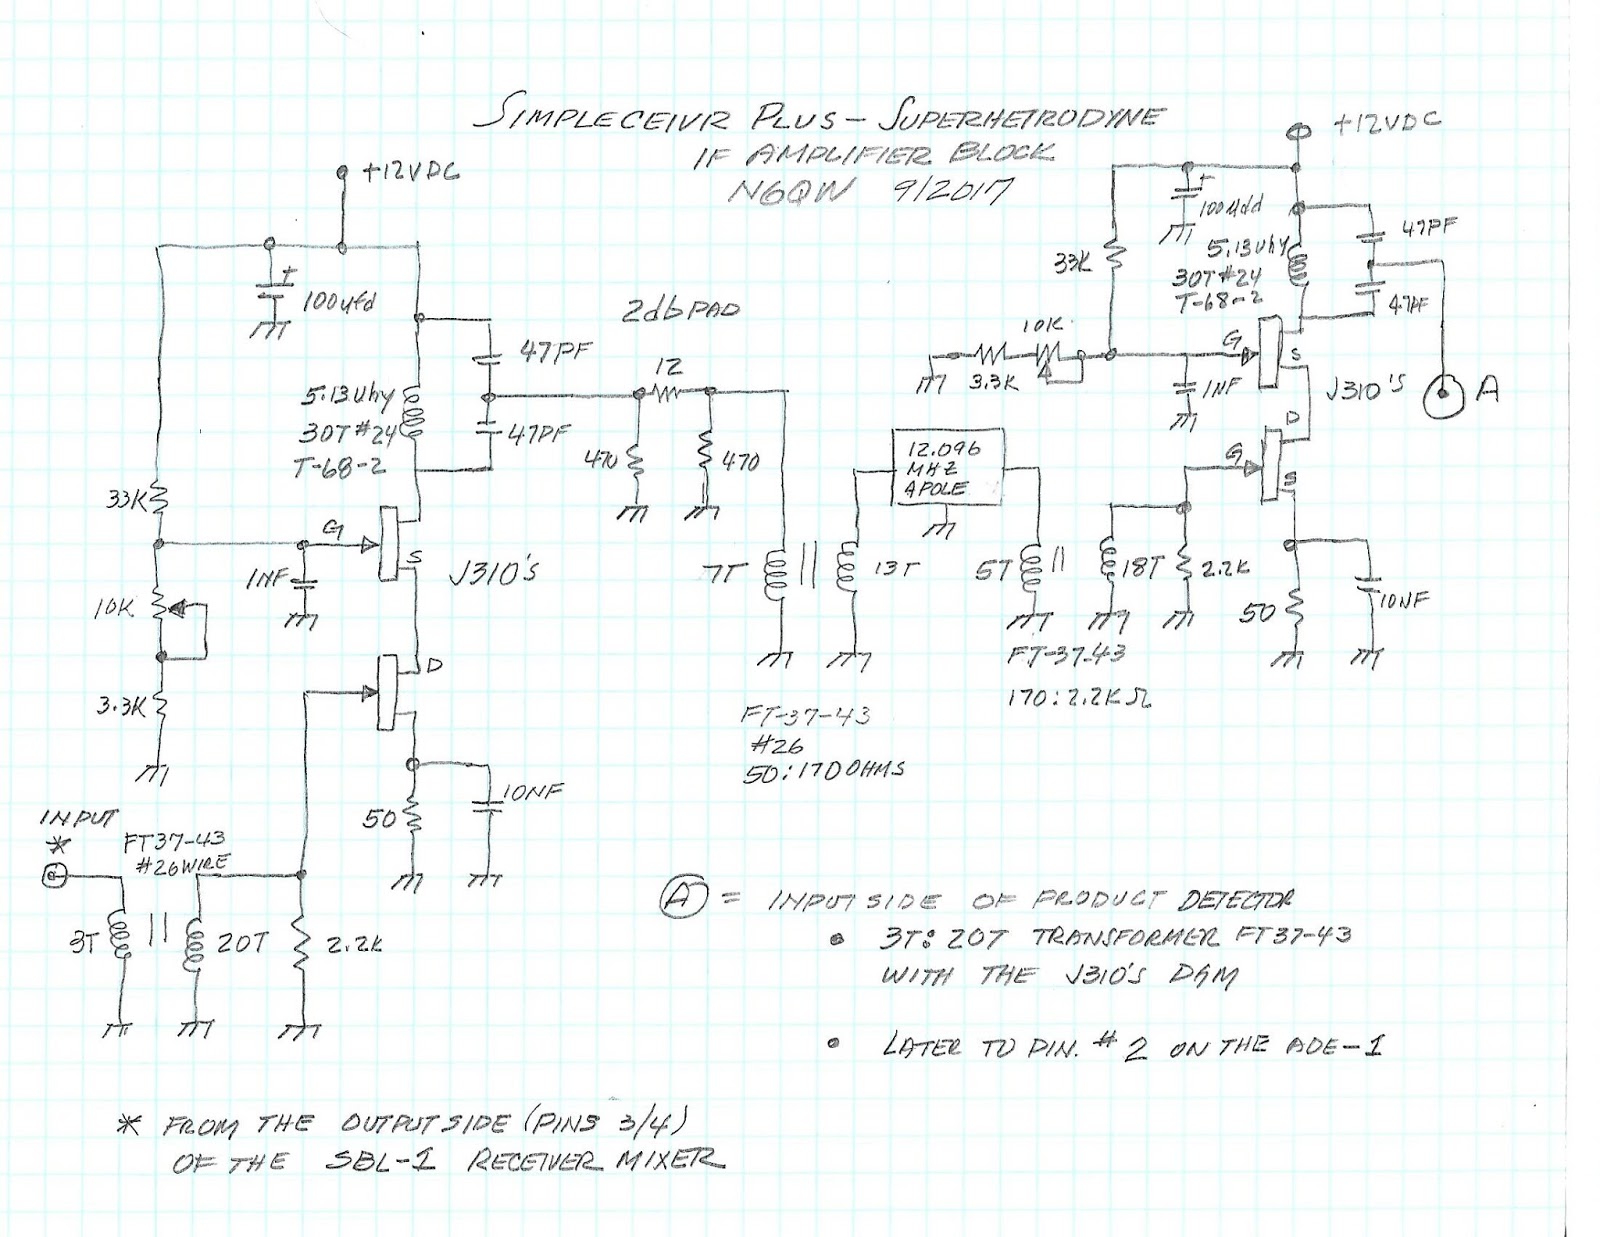 SIMPLECEIVR PLUS - SUPERHETRODYNE
IF AMPLIFIER BLOCK
N6QW 9/2017
+12VDC
100ufd
5.13Uhy
30T #24
T-68-2
47PF
47PF
33K
10K
3.3K
1NF
G
S
J310'S
D
50
10NF
INPUT
*
FT37-43
#26 WIRE
3T
20T
2.2K
2db PAD
12
470
470
7T
13T
FT-37-43
#26
50:170 OHMS
12.096
MHZ
4POLE
5T
18T
2.2K
FT-37-43
170:2.2KΩ
+12VDC
100Ufd
33K
5.13Uhy
30T #24
T-68-2
47PF
47PF
10K
3.3K
1NF
G
S
J310'S
A
D
G
S
50
10NF
A = INPUT SIDE OF PRODUCT DETECTOR
• 3T:20T TRANSFORMER FT37-43
WITH THE J310'S DGM
• LATER TO PIN. #2 ON THE ADE-1
* FROM THE OUTPUT SIDE (PINS 3/4)
OF THE SBL-1 RECEIVER MIXER